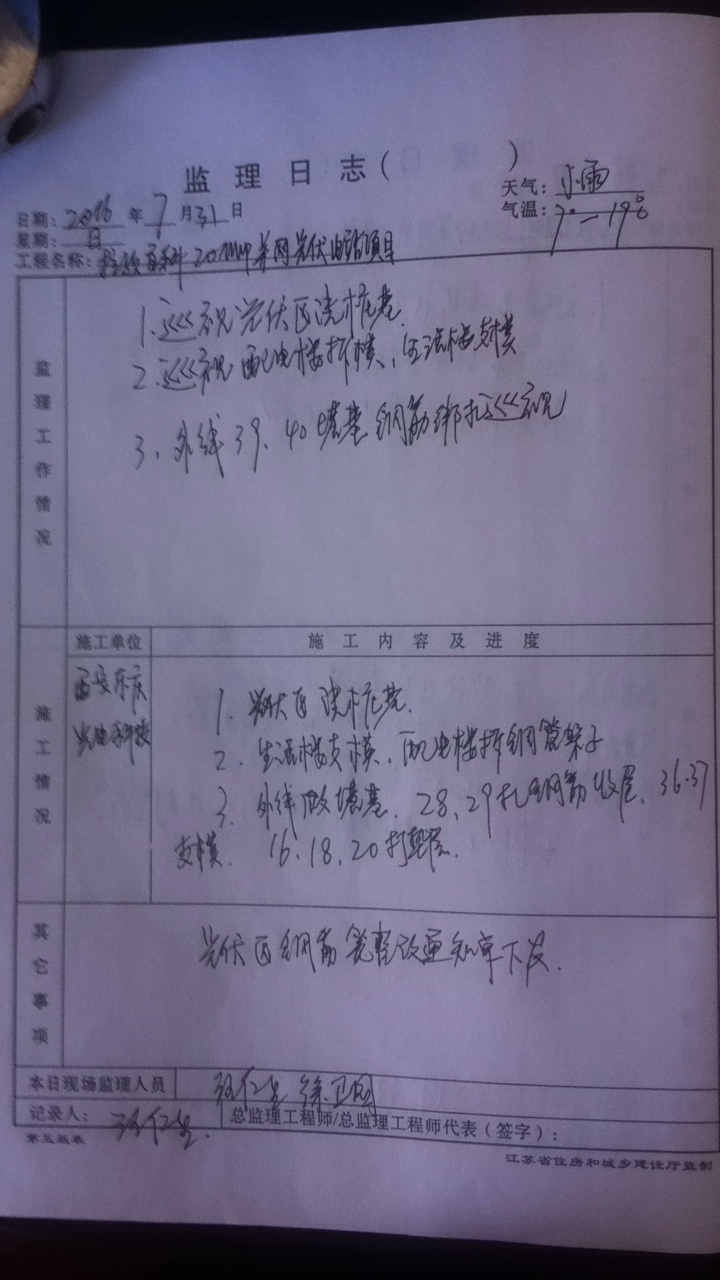 监理日志( )
天气: 小雨
日期: 2016 年 7 月 31 日
气温: 7°—19°
星期: 日
工程名称: 20MWp并网光伏电站项目
监理工作情况
1. 巡视光伏区浇桩基.
2. 巡视配电楼拆模, 生活楼支模
3. 外线39、40塔基钢筋绑扎巡视
施工单位
施工内容及进度
施工情况
西安东庆
光电科技
1. 光伏区浇桩基.
2. 生活楼支模、配电楼拆钢管架子
3. 外线做塔基. 28、29扎钢筋收尾、36.37
支模. 16、18、20打垫层.
其它事项
光伏区钢筋笼整改通知单下发.
本日现场监理人员
徐卫国
记录人:
总监理工程师/总监理工程师代表(签字):
第五版表
江苏省住房和城乡建设厅监制